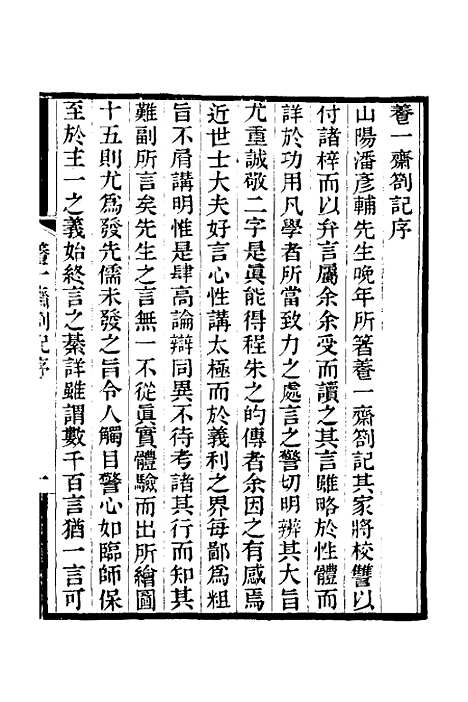 養一齋劄記序
山陽潘彥輔先生晚年所箸養一齋劄記其家將校讐以
付諸梓而以弁言屬余余受而讀之其言雖略於性體而
詳於功用凡學者所當致力之處言之警切明辨其大旨
尤重誠敬二字是眞能得程朱之的傳者余因之有感焉
近世士大夫好言心性講太極而於義利之界每鄙爲粗
旨不屑講明惟是肆高論辯同異不待考諸其行而知其
難副所言矣先生之言無一不從眞實體驗而出所繪圖
十五則尤爲發先儒未發之旨令人觸目警心如臨師保
至於主一之義始終言之綦詳雖謂數千百言猶一言可
養一齋劄記序
一